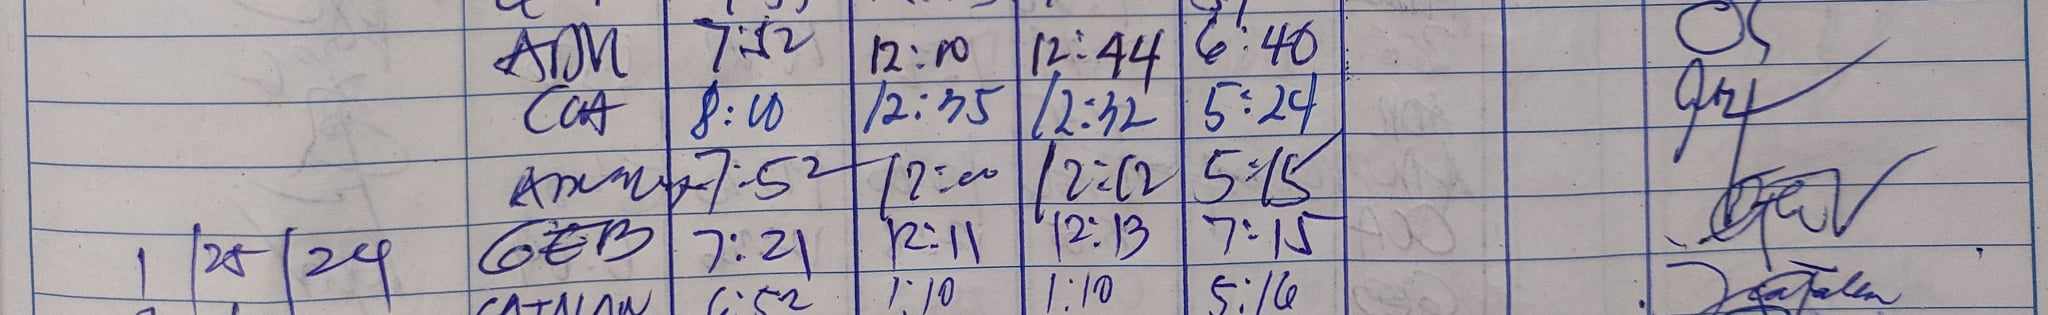 ADM 7:52 12:10 12:44 6:40
CCA 8:10 12:35 12:32 5:24
7:52 12:00 12:12 5:15
1/25/24 GEB 7:21 12:11 12:13 7:15
CATALAN 6:52 1:10 1:10 5:16 Catalan